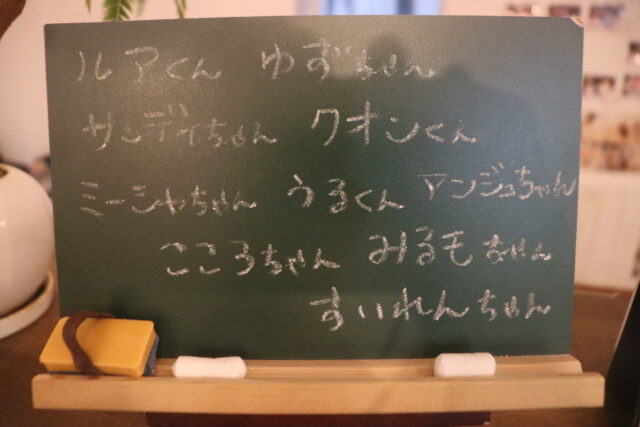 ルアくん ゆずちゃん
サンディちゃん クオンくん
ミーシャちゃん うるくん アンジュちゃん
こころちゃん みるモちゃん
すいれんちゃん